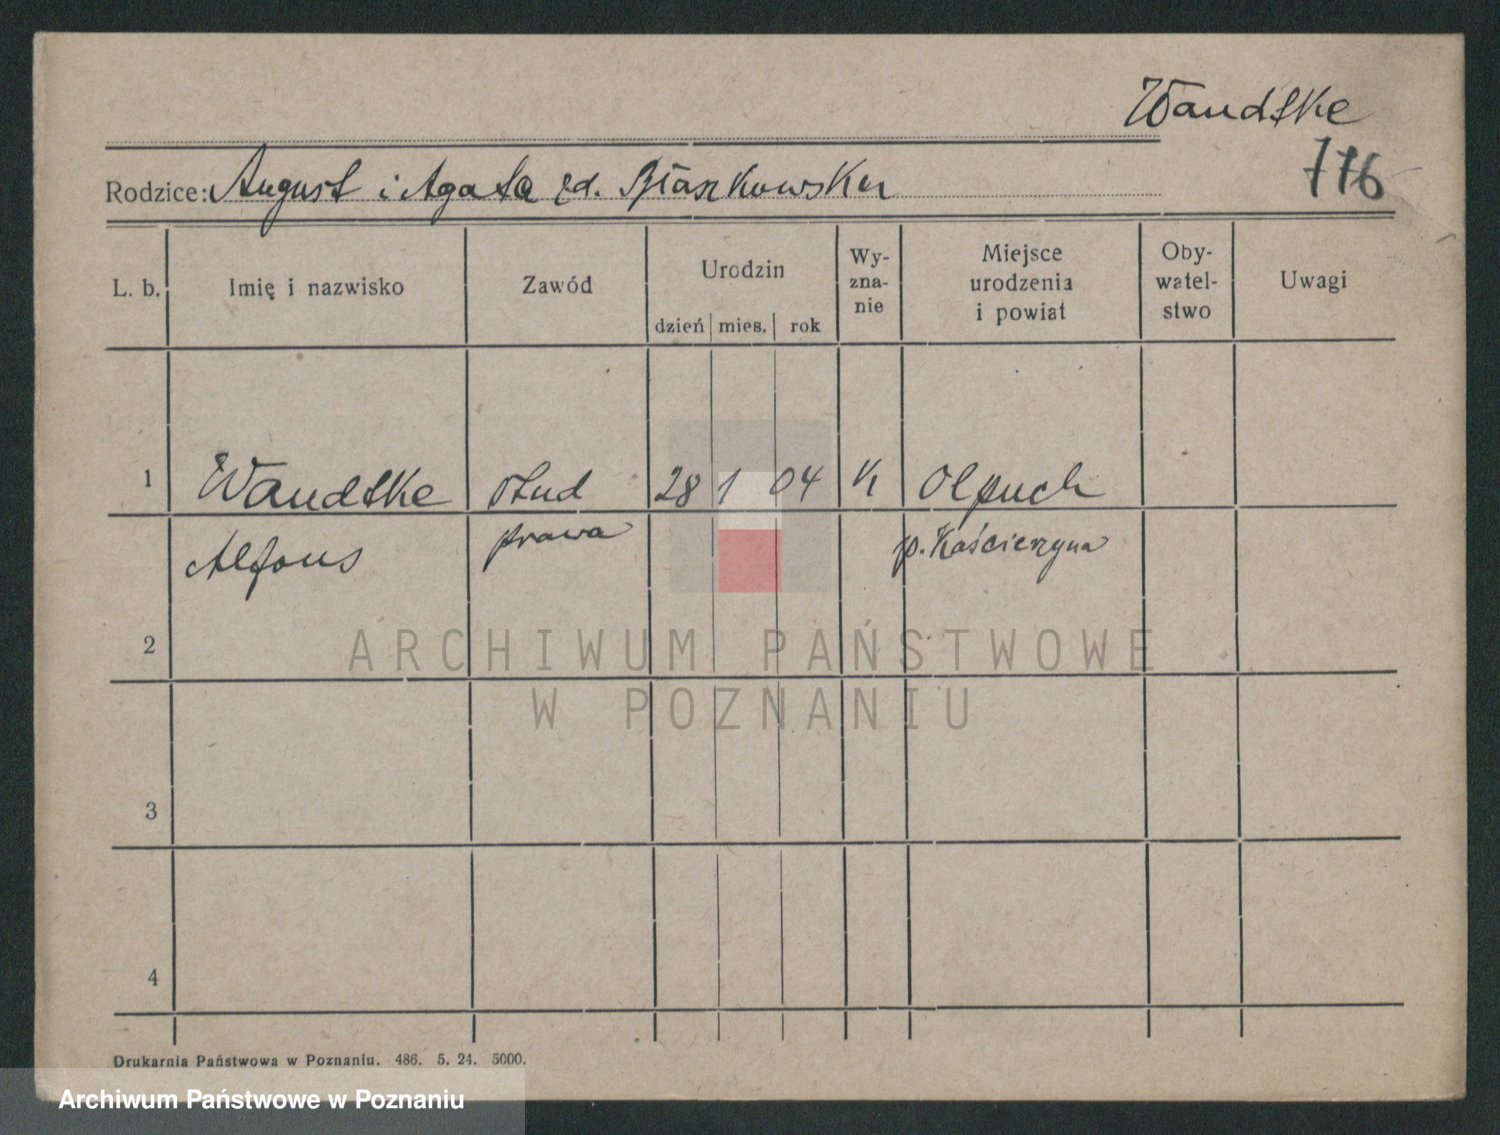 Wandtke
776
Rodzice: August i Agata zd. Błaszkowska
L. b.
Imię i nazwisko
Zawód
Urodzin
dzień mies. rok
Wy-
zna-
nie
Miejsce
urodzenia
i powiat
Oby-
watel-
stwo
Uwagi
1 Wandtke stud 28 1 04 K Olpuch
Alfons prawa p. Kościerzyna
2
ARCHIWUM PAŃSTWOWE
W POZNANIU
3
4
Drukarnia Państwowa w Poznaniu. 486. 5. 24. 5000.
Archiwum Państwowe w Poznaniu